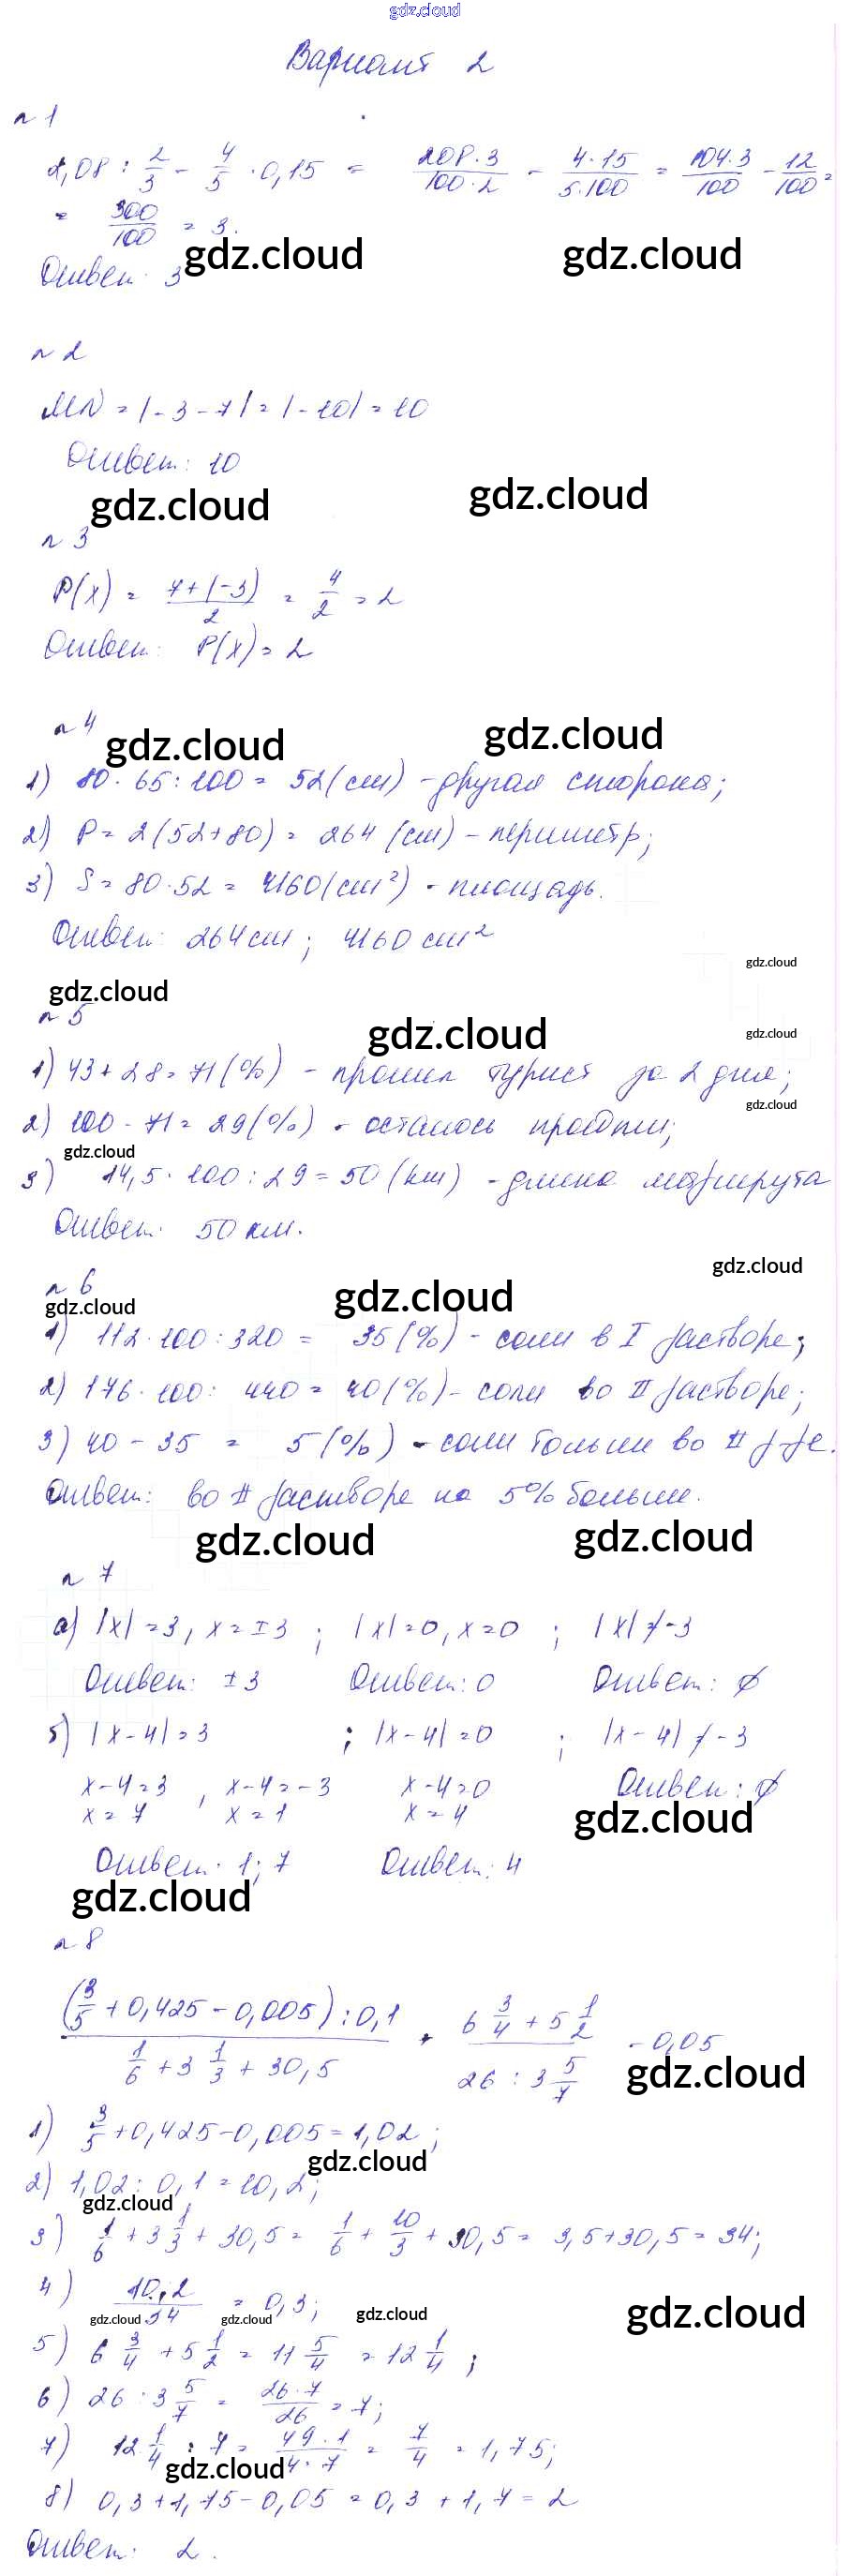 gdz.cloud
Вариант 2
n 1
2,08 : 2/3 - 4/5 · 0,15 = 208·3/100·2 - 4·15/5·100 = 104·3/100 - 12/100 =
= 300/100 = 3.
gdz.cloud gdz.cloud
Ответ: 3
n 2
MN = |-3-7| = |-10| = 10
Ответ: 10
gdz.cloud gdz.cloud
n 3
P(x) = 7+(-3)/2 = 4/2 = 2
Ответ: P(x) = 2
n 4
gdz.cloud gdz.cloud
1) 80 · 65 : 100 = 52 (см) - другая сторона;
2) P = 2(52+80) = 264 (см) - периметр;
3) S = 80·52 = 4160 (см²) - площадь.
Ответ: 264 см; 4160 см²
gdz.cloud
gdz.cloud
n 5
gdz.cloud gdz.cloud
1) 43 + 28 = 71 (%) - прошел турист за 2 дня;
gdz.cloud
2) 100 - 71 = 29 (%) - осталось пройти;
gdz.cloud
3) 14,5 · 100 : 29 = 50 (км) - длина маршрута
Ответ: 50 км.
gdz.cloud
n 6
gdz.cloud gdz.cloud
1) 112·100 : 320 = 35 (%) - соли в I растворе;
2) 176·100 : 440 = 40 (%) - соли во II растворе;
3) 40 - 35 = 5 (%) - соли больше во II р-ре.
Ответ: во II растворе на 5% больше.
gdz.cloud gdz.cloud
n 7
а) |x| = 3, x = ±3 ; |x| = 0, x = 0 ; |x| ≠ -3
Ответ: ±3 Ответ: 0 Ответ: ∅
б) |x-4| = 3 ; |x-4| = 0 ; |x-4| ≠ -3
x-4=3 , x-4=-3 x-4=0 Ответ: ∅
x = 7 x = 1 x = 4
gdz.cloud
Ответ: 1; 7 Ответ: 4
gdz.cloud
n 8
(3/5 + 0,425 - 0,005) : 0,1 / 1/6 + 3 1/3 + 30,5 + 6 3/4 + 5 1/2 / 26 : 3 5/7 - 0,05
gdz.cloud
1) 3/5 + 0,425 - 0,005 = 1,02;
gdz.cloud
2) 1,02 : 0,1 = 10,2;
gdz.cloud
3) 1/6 + 3 1/3 + 30,5 = 1/6 + 10/3 + 30,5 = 3,5 + 30,5 = 34;
4) 10,2/34 = 0,3;
gdz.cloud gdz.cloud gdz.cloud gdz.cloud
5) 6 3/4 + 5 1/2 = 11 5/4 = 12 1/4 ;
6) 26 : 3 5/7 = 26·7/26 = 7;
7) 12 1/4 : 7 = 49·1/4·7 = 7/4 = 1,75;
gdz.cloud
8) 0,3 + 1,75 - 0,05 = 0,3 + 1,7 = 2
Ответ: 2.